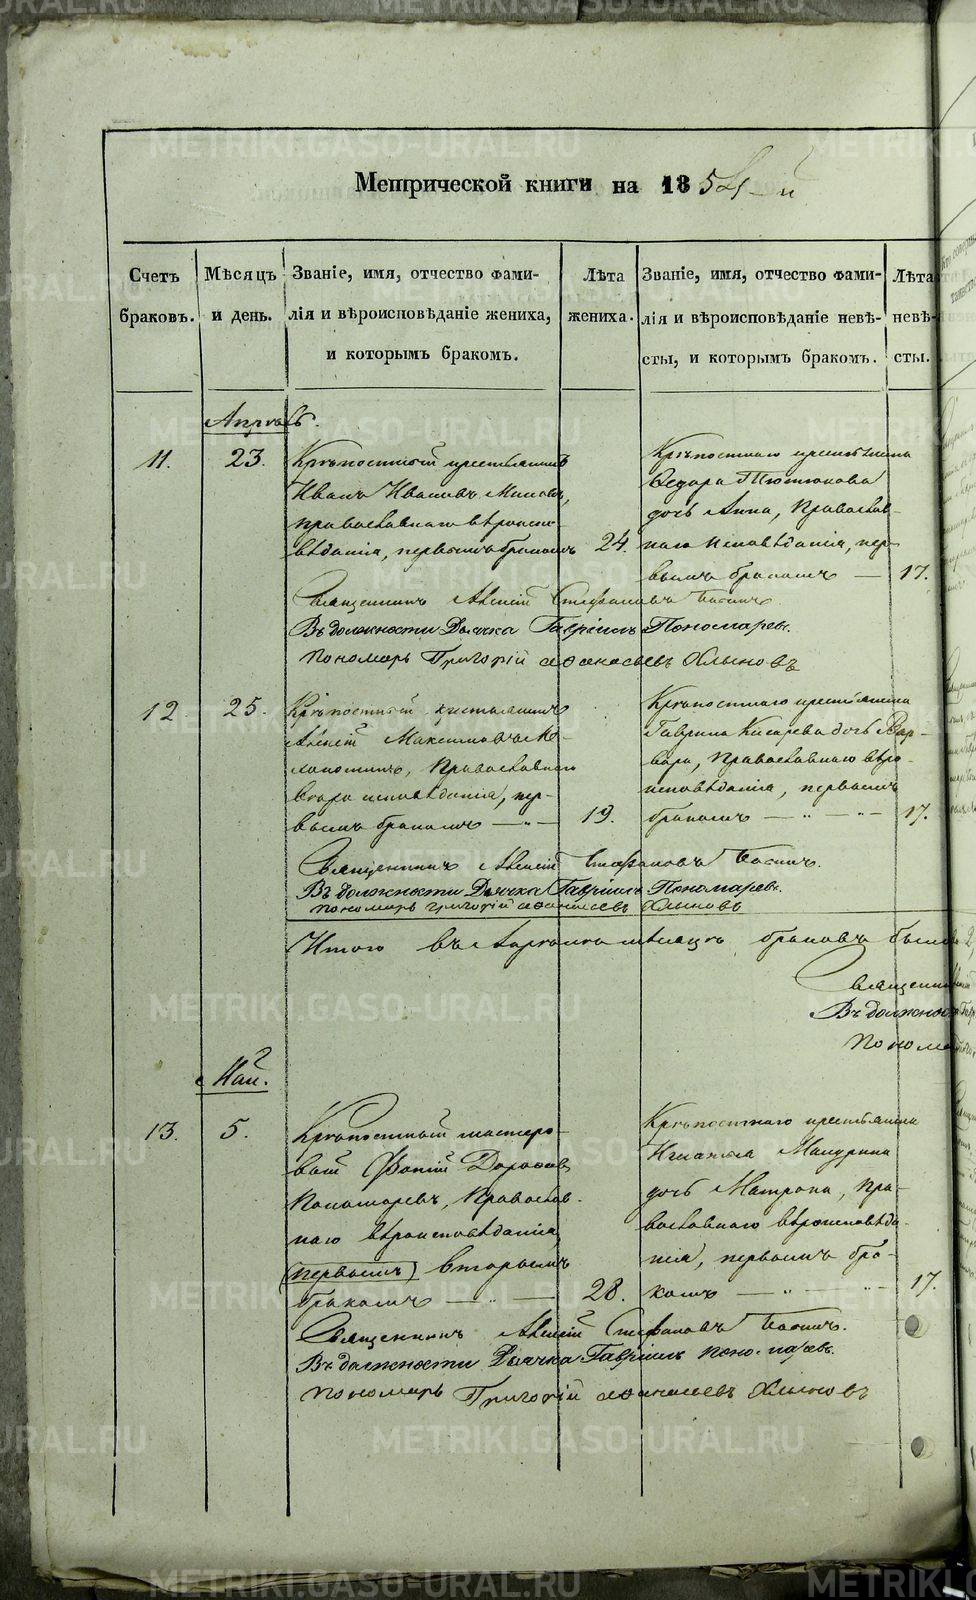 Метрической книги на 1854-й
Счетъ браковъ.
Мѣсяцъ и день.
Званіе, имя, отчество фами-
лія и вѣроисповѣданіе жениха,
и которымъ бракомъ.
Лѣта жениха.
Званіе, имя, отчество фами-
лія и вѣроисповѣданіе невѣ-
сты, и которымъ бракомъ.
Лѣта невѣ-
сты.
Апрѣль.
11.
23.
Крѣпостный крестьянинъ
Иванъ Ивановъ
православнаго вѣроиспо-
вѣданія, первымъ бракомъ
24.
Крѣпостнаго крестьянина
Ѳедора Тютюкова
дочь Анна, Православ-
наго исповѣданія, пер-
вымъ бракомъ —
17.
Священникъ Алексій Стефановъ
Въ должности Дьячка Гавріилъ Пономаревъ.
Пономарь Григорій Аѳанасьевъ Хлыновъ
12
25.
Крѣпостный крестьянинъ
Алексій Максимовъ
Православнаго
исповѣданія, пер-
вымъ бракомъ — „ —
19.
Крѣпостнаго крестьянина
Гаврила Кисарева дочь Вар-
вара, Православнаго вѣро-
исповѣданія, первымъ
бракомъ — „ — „ —
17.
Священникъ Алексій Стефановъ
Въ должности Дьячка Гавріилъ Пономаревъ.
Пономарь Григорій Аѳанасьевъ Хлыновъ
Итого въ Апрѣлѣ мѣсяцѣ браковъ было 2,
Священникъ
Въ должнос
Понома
Май.
13.
5.
Крѣпостный мастеро-
вой Фотій
Пономаревъ, Православ-
наго вѣроисповѣданія,
(первымъ) вторымъ
бракомъ — „ —
28.
Крѣпостнаго крестьянина
Игнатья Мандрина
дочь Матрона, Пра-
вославнаго вѣроисповѣда-
нія, первымъ бра-
комъ — „ — „ —
17.
Священникъ Алексій Стефановъ
Въ должности Дьячка Гавріилъ Пономаревъ.
Пономарь Григорій Аѳанасьевъ Хлыновъ
METRIKI.GASO-URAL.RU